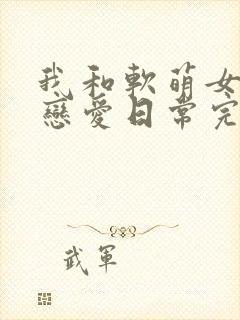 我和軟萌女
戀愛日常完
武軍